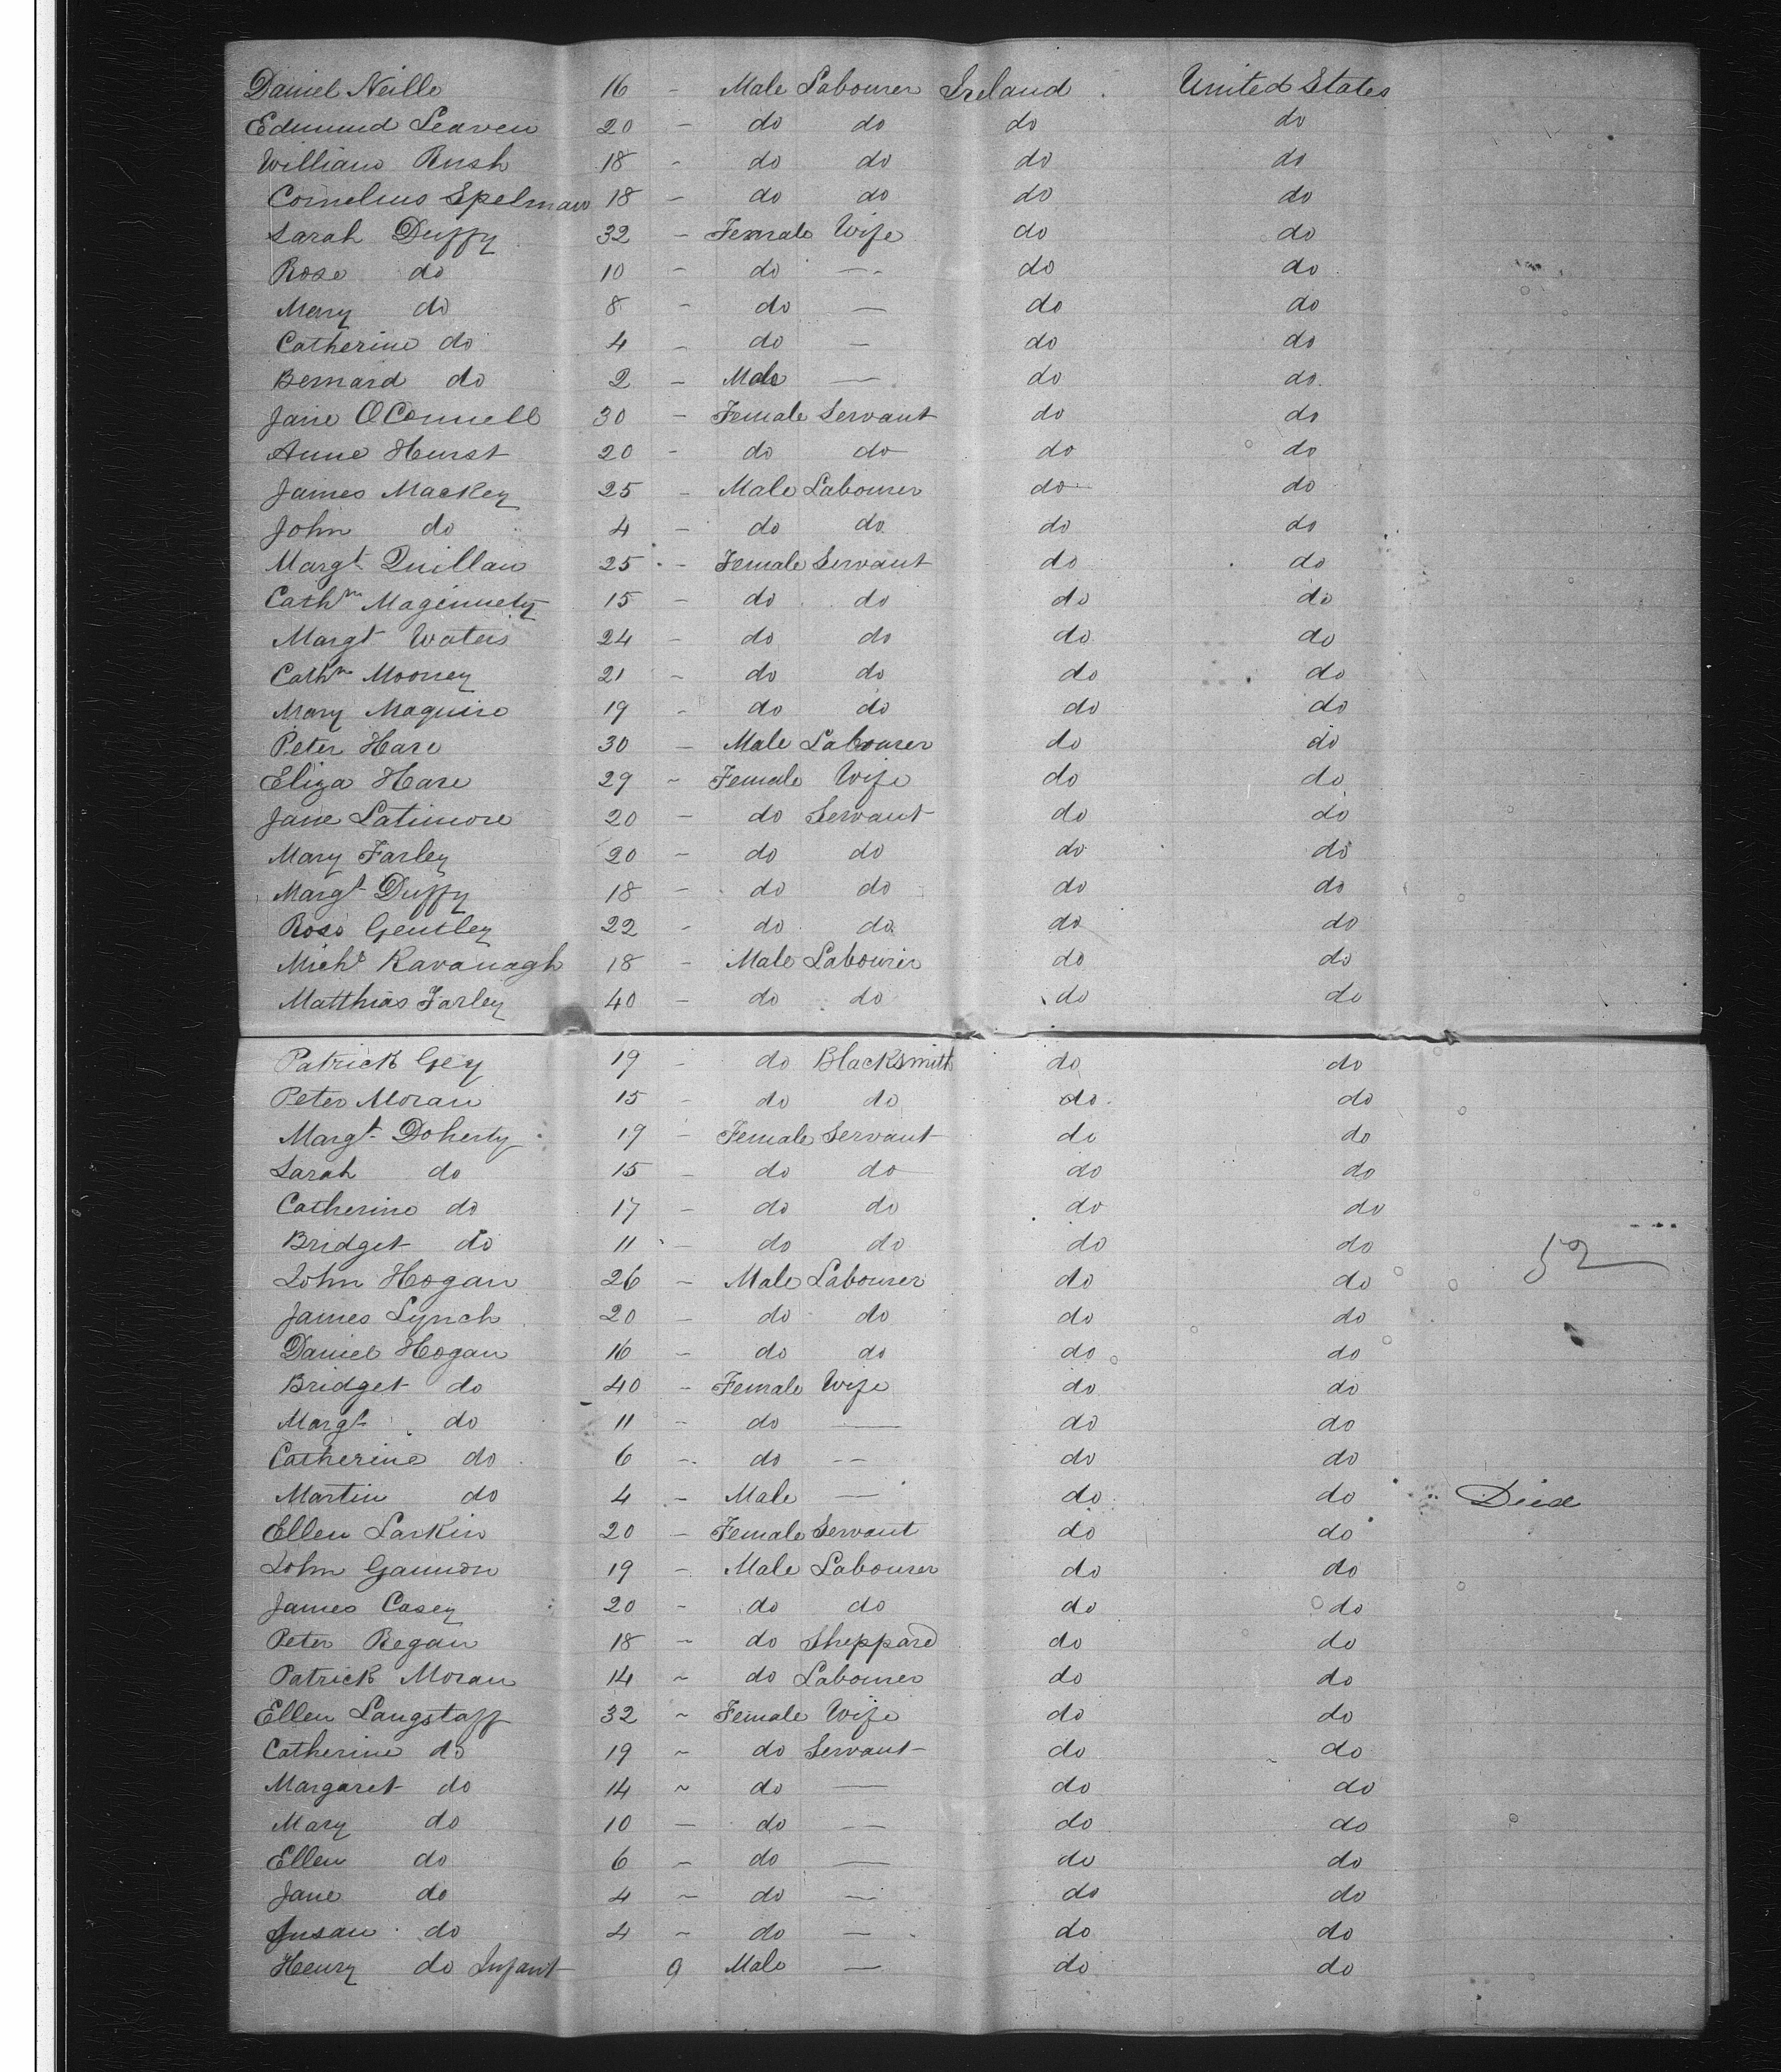 Daniel Neille 16 - Male Labourer Ireland United States
Edmund Leaven 20 - do do do do
William Rush 18 - do do do do
Cornelius Spelman 18 - do do do do
Sarah Duffy 32 - Female Wife do do
Rose do 10 - do - do do
Mary do 8 - do - do do
Catherine do 4 - do - do do
Bernard do 2 - Male - do do
Jane O'Connell 30 - Female Servant do do
Anne Hurst 20 - do do do do
James Mackey 25 - Male Labourer do do
John do 4 - do do do do
Margt Quillan 25 - Female Servant do do
Cathne Magennety 15 - do do do do
Margt Waters 24 - do do do do
Cathne Mooney 21 - do do do do
Mary Maguire 19 - do do do do
Peter Hare 30 - Male Labourer do do
Eliza Hare 29 - Female Wife do do
Jane Latimore 20 - do Servant do do
Mary Farley 20 - do do do do
Margt Duffy 18 - do do do do
Rose Gentley 22 - do do do do
Michl Kavanagh 18 - Male Labourer do do
Matthias Farley 40 - do do do do
Patrick Gey 19 - do Blacksmith do do
Peter Moran 15 - do do do do
Margt Doherty 19 - Female Servant do do
Sarah do 15 - do do do do
Catherine do 17 - do do do do
Bridget do 11 - do do do do 52
John Hogan 26 - Male Labourer do do
James Lynch 20 - do do do do
Daniel Hogan 16 - do do do do
Bridget do 40 - Female Wife do do
Margt do 11 - do - do do
Catherine do 6 - do - do do
Martin do 4 - Male - do do Died
Ellen Larkin 20 - Female Servant do do
John Gannon 19 - Male Labourer do do
James Casey 20 - do do do do
Peter Regan 18 - do Sheppard do do
Patrick Moran 14 - do Labourer do do
Ellen Langstaff 32 - Female Wife do do
Catherine do 19 - do Servant do do
Margaret do 14 - do - do do
Mary do 10 - do - do do
Ellen do 6 - do - do do
Jane do 4 - do - do do
Susan do 4 - do - do do
Henry do Infant 9 Male - do do